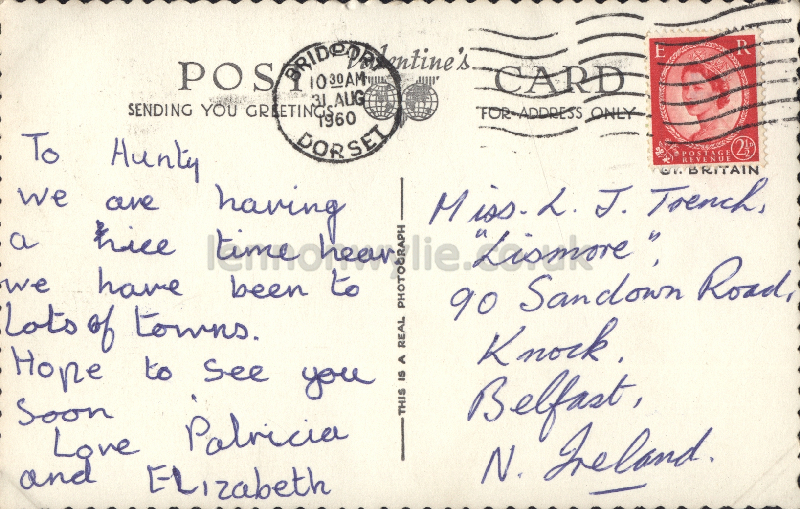 Valentine's
POST CARD
SENDING YOU GREETINGS
FOR ADDRESS ONLY
BRIDPORT
10 30 AM
31 AUG
1960
DORSET
E R
POSTAGE
REVENUE
2½D
GT. BRITAIN
To Aunty
we are having
a nice time hear
we have been to
Lots of towns.
Hope to see you
soon.
Love Patricia
and ELizabeth
THIS IS A REAL PHOTOGRAPH
Miss. L. J. Trench,
"Lismore",
90 Sandown Road,
Knock,
Belfast,
N. Ireland.
lennonwylie.co.uk